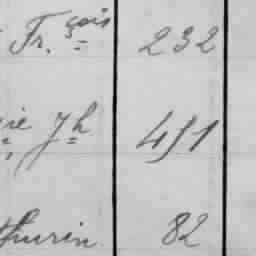 Fr.çois 232
rie Jh 451
thurin 82